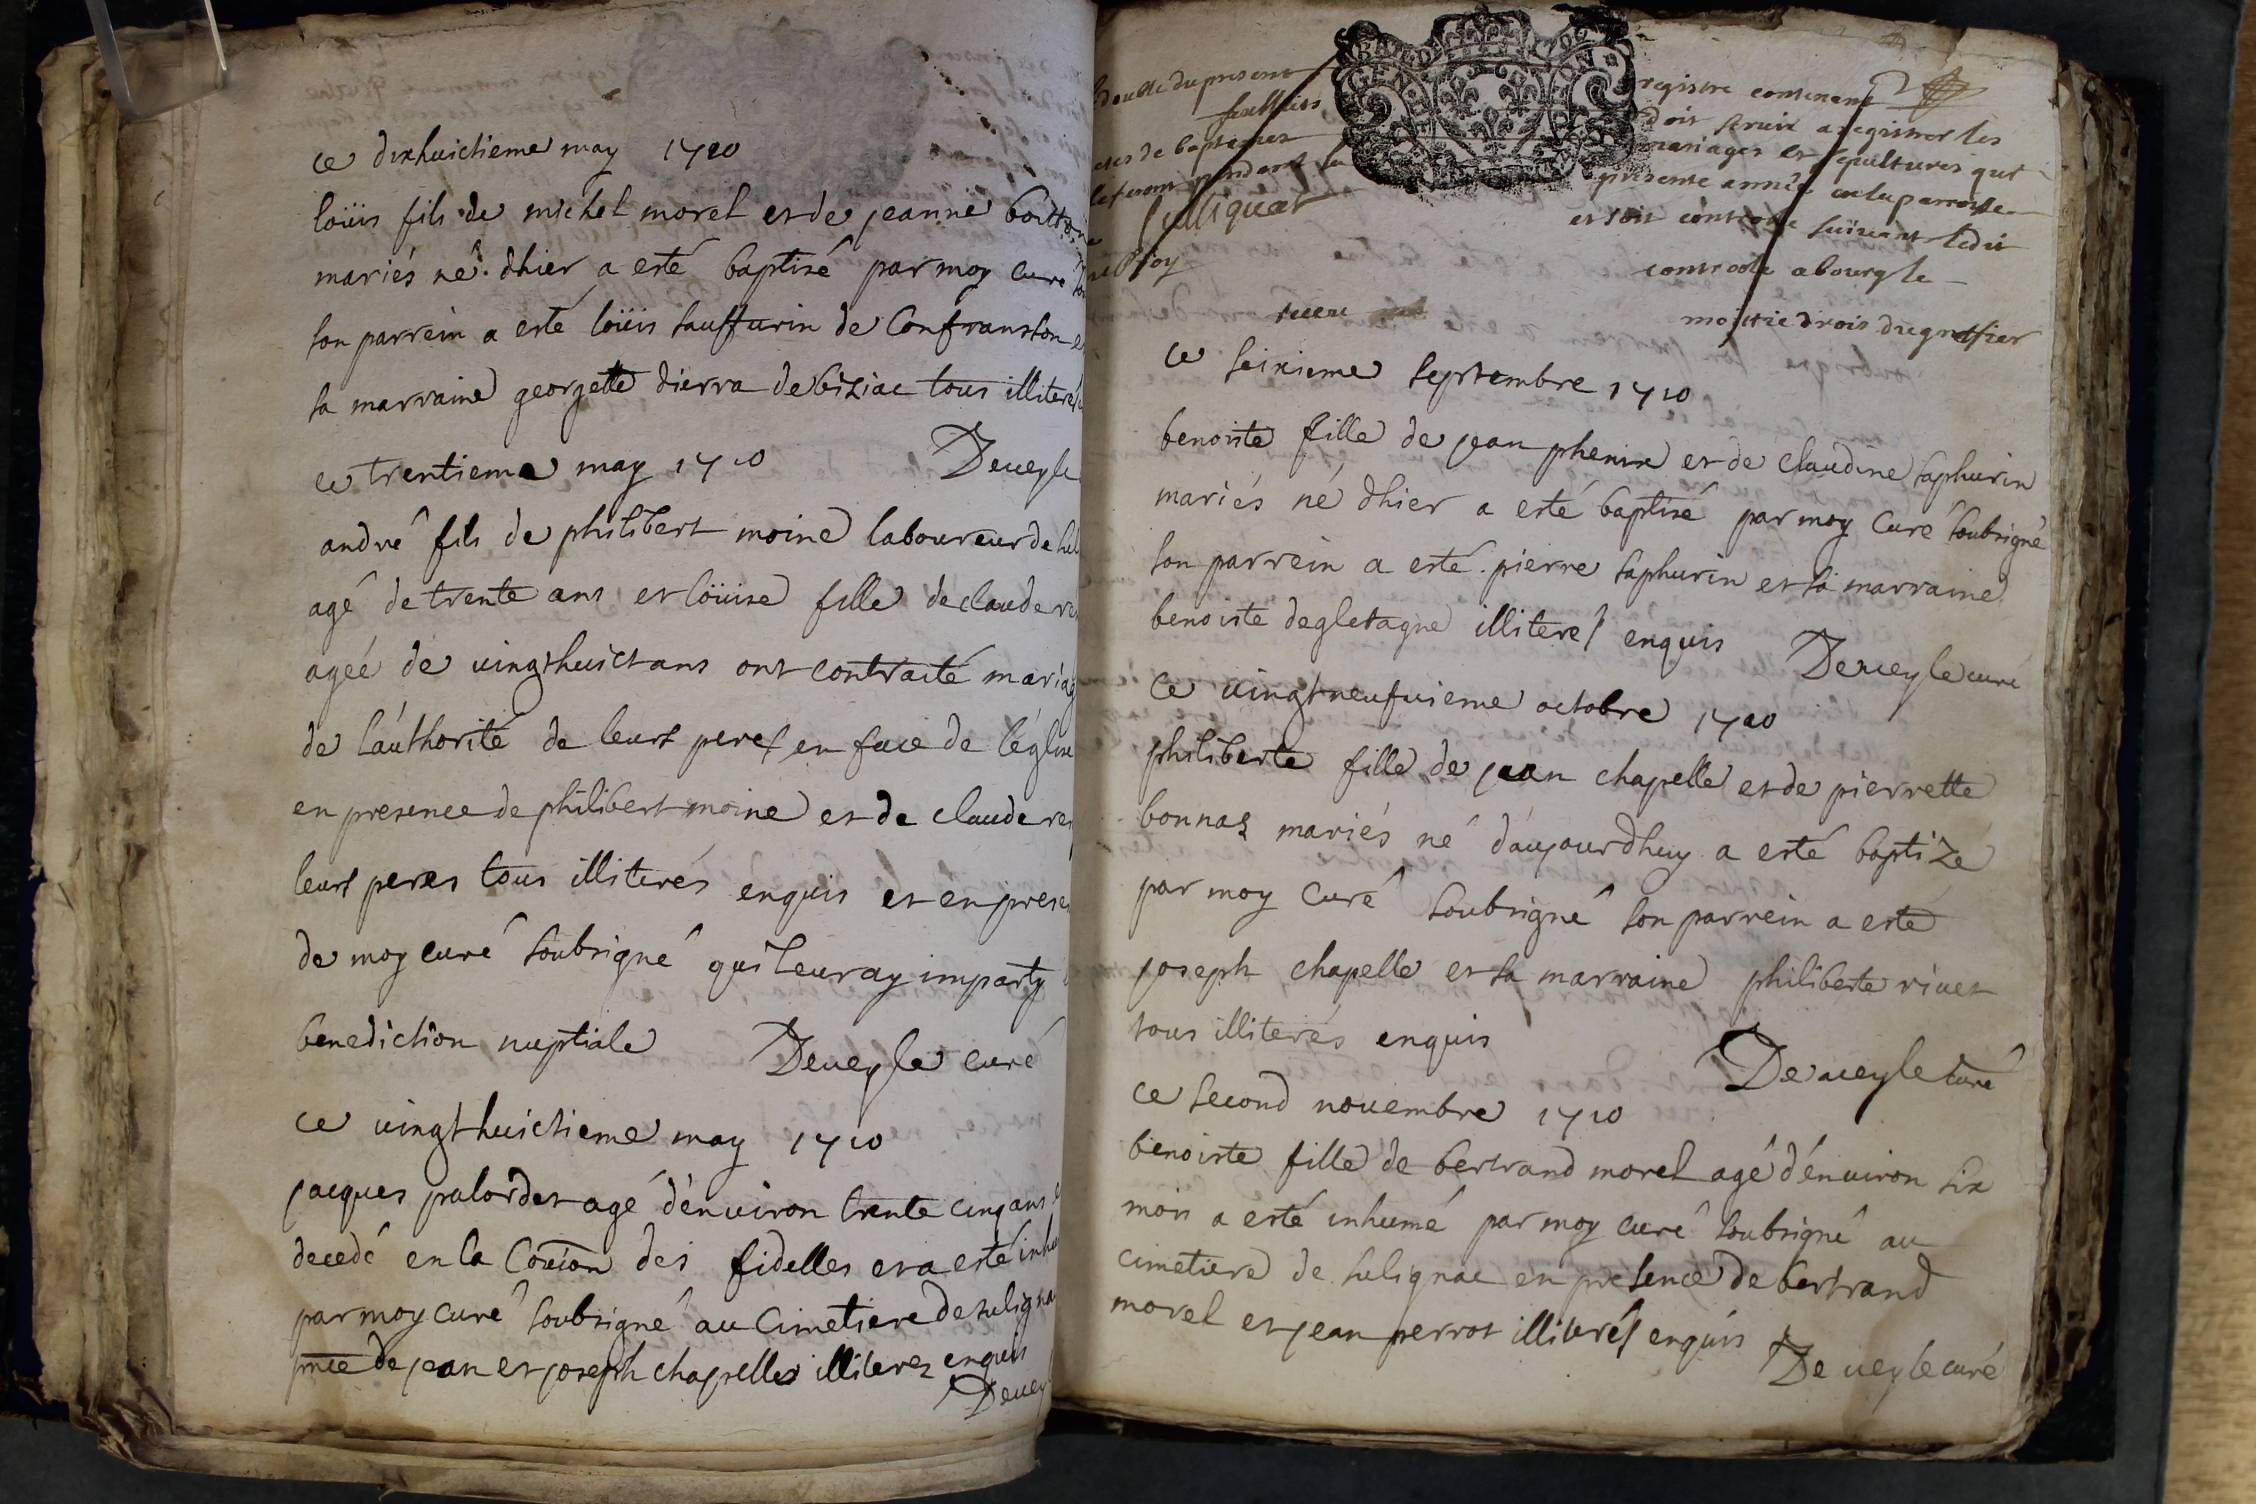 ce dixhuictieme may 1710
loüis fils de michel morel et de jeanne
mariés né dhier a esté baptizé par moy curé
son parrein a esté loüis sauffurin de Confranson
sa marraine georgette dierra de biziac tous illiterés
Deueyle
ce trentieme may 1710
andré fils de philibert moine laboureur de
agé de trente ans et loüise fille de claude
ageé de uingt huict ans ont contracté mariag
de láuthorité de leurs peres en face de léglise
en presence de philibert moine et de claude
leurs peres tous illiterés enquis et en prese
de moy curé soubsigné qui leur ay imparty
benediction nuptiale Deueyle curé
ce uingt huictieme may 1710
jacques palordet agé dénuiron trente cinq ans
decedé en la Com̄ion des fidelles et a esté inhu
par moy curé soubsigné au Cimetiere de suligna
pn̄ce de jean et joseph chapelles illiteres enquis
Deuey
double du present
feuillets
actes de baptemes
se feront pendant la
GEN BOURG
registre contenant
doit seruir a registrer les
mariages et sepultures qui
presente année en la parroisse
et soit controllé suiuant ledit
controole a bourg le
moittié droit du greffier
ce seixieme septembre 1710
benoite fille de jean phenix et de claudine saphurin
mariés né dhier a esté baptizé par moy Curé soubsigné
son parrein a esté pierre saphurin et sa marraine
benoite degletagne illiteres enquis Deueyle curé
ce uingt neufuieme octobre 1710
philiberte fille de jean chapelle et de pierrette
bonnaz mariés né dáujourdhuy a esté baptizé
par moy Curé soubsigné son parrein a esté
joseph chapelle et sa marraine philiberte riuet
tous illiterés enquis
Deueyle curé
ce second nouembre 1710
benoiste fille de bertrand morel agé dénuiron six
mois a esté inhumé par moy curé soubsigné au
cimetiere de sulignac en presence de bertrand
morel et jean perrot illiterés enquis Deueyle curé